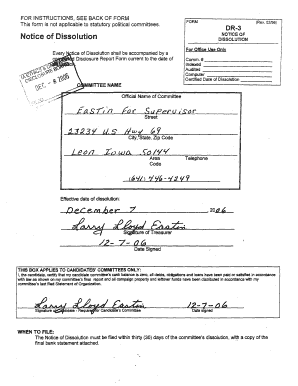 FOR INSTRUCTIONS, SEE BACK OF FORM
This form is not applicable to statutory political committees.
Notice of Dissolution
FORM
(Rev. 02/98)
DR-3
NOTICE OF
DISSOLUTION
For Office Use Only
Comm. #
Indexed
Audited
Computer
Certified Date of Dissolution
Every Notice of Dissolution shall be accompanied by a
completed Disclosure Report Form current to the date of
DEC - 8 2006
COMMITTEE NAME
Official Name of Committee
Eastin For Supervisor
Street
23234 US Hwy 69
City, State, Zip Code
Leon Iowa 50144
Area
Code
Telephone
(641) 446-4249
Effective date of dissolution:
December 7 2006
Larry Lloyd Eastin
Signature of Treasurer
12-7-06
Date Signed
THIS BOX APPLIES TO CANDIDATES' COMMITTEES ONLY:
I, the candidate, certify that my candidate committee's cash balance is zero, all debts, obligations and loans have been paid or satisfied in accordance
with law as shown on my committee's final report and all campaign property and leftover funds have been distributed in accordance with my
committee's last filed Statement of Organization.
Larry Lloyd Eastin
12-7-06
Signature of Candidate - Required for Candidate's Committee
Date signed
WHEN TO FILE:
The Notice of Dissolution must be filed within thirty (30) days of the committee's dissolution, with a copy of the
final bank statement attached.